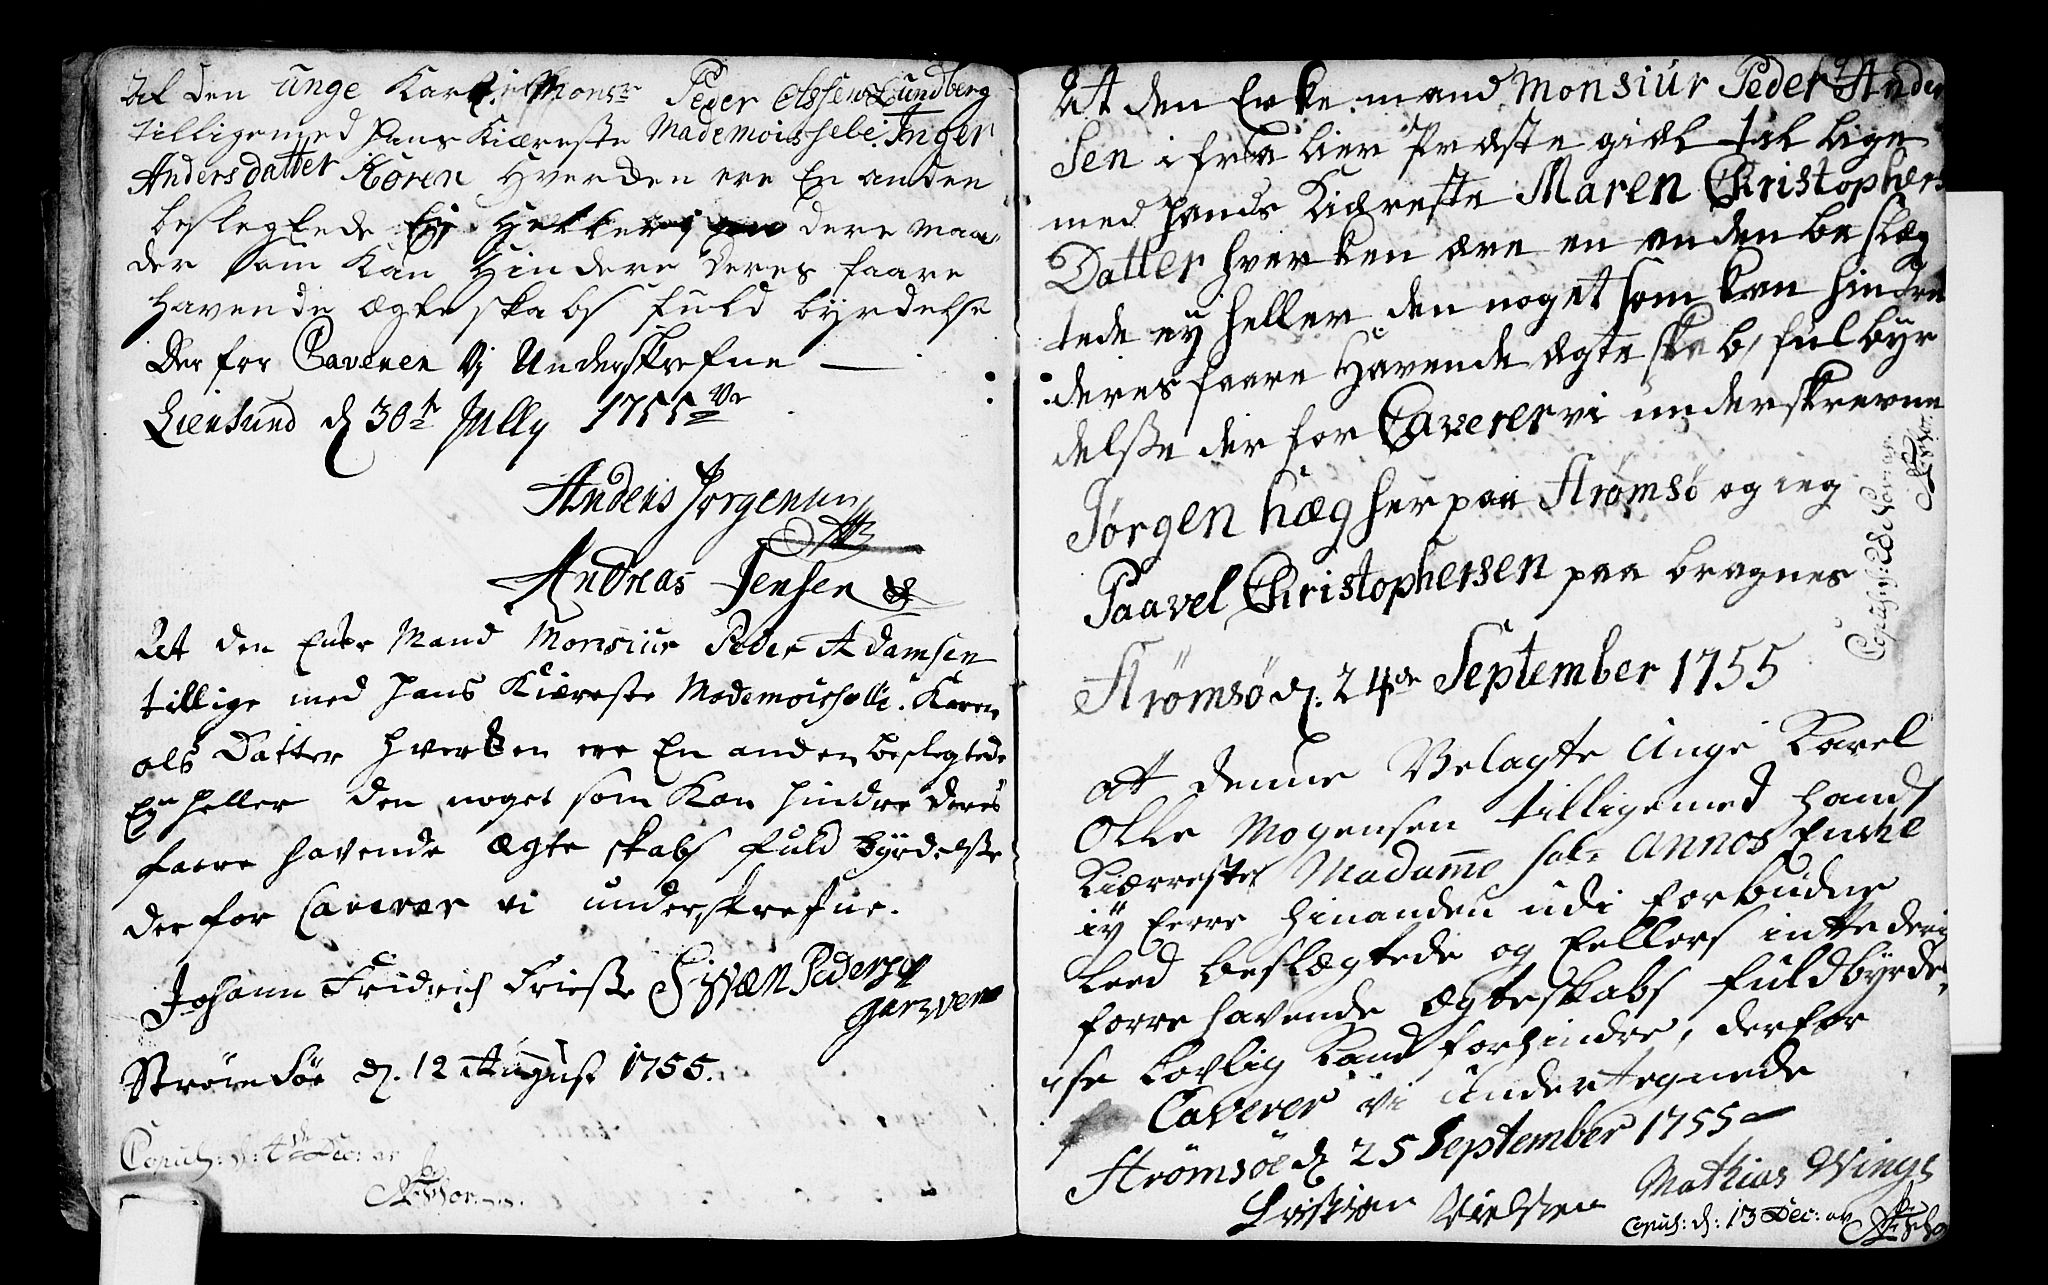 At den unge Karl Monsr Peder Olssen Lundberg
tilligemed hans Kiæreste Mademoisselle Inger
Andersdatter Kören Hverden ere En anden
beslegtede Ej Heller dere maa
der som Kan Hindere deres faare
havende ægte skabs fuld byrdelse
Der for Caveren Vj Underskrefne
Liensund d 30te Jully 1755
Anders Jorgensen
Andreas Jensen
At den Enke Mand Monsiur Peder Adamsen
tillige med hans Kiæreste Mademoisselle Karen
ols Datter hverken ere En anden beslegtede
Ey heller den noget som Kan hindre deres
faare havende Ægte skabs fuld byrdelsse
der for Caverer vi underskrefne.
Johann Fridrich Friesse Pedersen
Strömsöe d. 12 August 1755.
Copul: d: 4de Dec:
At den Enke mand Monsiur Peder Ander
Sen i fra Lier Præste giæl til lige
med hands Kiæreste Maren Christophers
Datter hverken ære en anden beslæg
tede ey heller den noget som kan hindre
deres faare Havende ægte skab, fulbyr
delsse der for Caverer vi underskrevne
Jörgen hæg her paa Strömsö og ieg
Paavel Christophersen paa bragnes
Strömsö d. 24de September 1755
Copul: d: 28 Novr:
at denne Velagte Unge Karel
Olle Mogensen tilligemed hands
Kiærreste Madame sal: Annos Encke
iy Eere hinanden udi forbudne
Leed beslægtede og Eellers intte deris
forre havende Ægteskabs fuldbyrde,
lse Lovlig Kand forhindre, derfor
Caverer vi Undertegnede
Strömsöe d 25 September 1755
Mathias Wings
Nielsen
Copul: d: 13 Dec: av